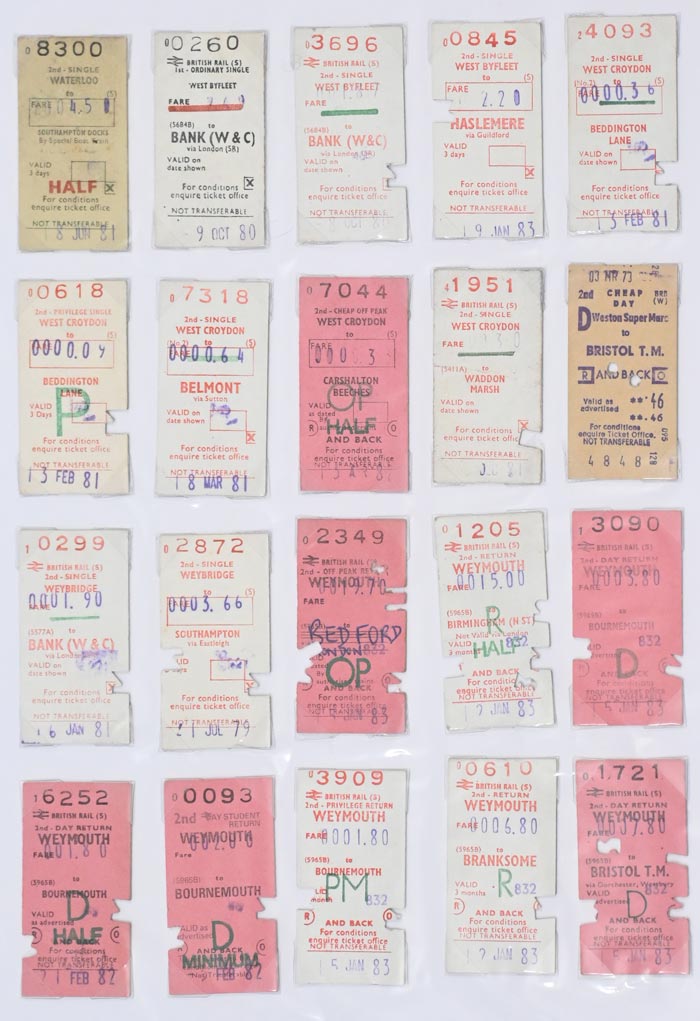 0 8300
2nd - SINGLE
WATERLOO
to (S)
FARE 04.50
SOUTHAMPTON DOCKS
By Special Boat Train
VALID
3 days
HALF
For conditions
enquire ticket office
NOT TRANSFERABLE
18 JUN 81
0 0260
BRITISH RAIL (S)
1st - ORDINARY SINGLE
WEST BYFLEET
FARE
(5684B) to
BANK (W & C)
via London (SR)
VALID on
date shown
For conditions
enquire ticket office
NOT TRANSFERABLE
9 OCT 80
0 3696
BRITISH RAIL (S)
2nd - SINGLE
WEST BYFLEET
FARE
(5684B) to
BANK (W & C)
via London (SR)
VALID on
date shown
For conditions
enquire ticket office
NOT TRANSFERABLE
OCT 80
0 0845
2nd - SINGLE
WEST BYFLEET
to (S)
FARE 2.20
HASLEMERE
via Guildford
VALID
3 days
For conditions
enquire ticket office
NOT TRANSFERABLE
19 JAN 83
2 4093
2nd - SINGLE
WEST CROYDON
(No.2) to (S)
FARE 0000.36
BEDDINGTON
LANE
VALID on
date shown
For conditions
enquire ticket office
NOT TRANSFERABLE
13 FEB 81
0 0618
2nd - PRIVILEGE SINGLE
WEST CROYDON
to (S)
FARE 0000.09
BEDDINGTON
LANE
P
VALID
3 Days
For conditions
enquire ticket office
NOT TRANSFERABLE
13 FEB 81
0 7318
2nd - SINGLE
WEST CROYDON
(No.2) to (S)
FARE 0000.64
BELMONT
via Sutton
VALID on
date shown
For conditions
enquire ticket office
NOT TRANSFERABLE
18 MAR 81
0 7044
2nd - CHEAP OFF PEAK
WEST CROYDON
to (S)
FARE 000.3
CARSHALTON
BEECHES
VALID
as dated
OP
HALF
R O
AND BACK
For conditions
enquire ticket office
NOT TRANSFERABLE
4 1951
BRITISH RAIL (S)
2nd - SINGLE
WEST CROYDON
FARE
(5411A) to
WADDON
MARSH
VALID on
date shown
For conditions
enquire ticket office
NOT TRANSFERABLE
81
03 MR 73
2nd CHEAP BRB
DAY (W)
D Weston Super Mare
to
BRISTOL T.M.
R AND BACK O
Valid as **.46
advertised **.46
For conditions
enquire Ticket Office,
NOT TRANSFERABLE
4848 128 095
1 0299
BRITISH RAIL (S)
2nd - SINGLE
WEYBRIDGE
FARE 0001.90
(5577A) to
BANK (W & C)
via London
VALID on
date shown
For conditions
enquire ticket office
NOT TRANSFERABLE
16 JAN 81
0 2872
2nd - SINGLE
WEYBRIDGE
to (S)
FARE 0003.66
SOUTHAMPTON
via Eastleigh
VALID
3 days
For conditions
enquire ticket office
NOT TRANSFERABLE
21 JUL 79
0 2349
BRITISH RAIL (S)
2nd - OFF PEAK RETURN
WEYMOUTH
FARE
REDFORD
LONDON 832
OP
AND BACK
For conditions
enquire ticket office
NOT TRANSFERABLE
JAN 83
0 1205
BRITISH RAIL (S)
2nd - RETURN
WEYMOUTH
FARE 0015.00
(5965B) to
BIRMINGHAM (N ST)
Not Valid via London
VALID
3 months 832
R
HALF
AND BACK
For conditions
enquire ticket office
NOT TRANSFERABLE
12 JAN 83
1 3090
BRITISH RAIL (S)
2nd - DAY RETURN
WEYMOUTH
FARE 0003.80
(5965B) to
BOURNEMOUTH
VALID 832
as advertised
D
AND BACK
For conditions
enquire ticket office
NOT TRANSFERABLE
JAN 83
1 6252
BRITISH RAIL (S)
2nd - DAY RETURN
WEYMOUTH
FARE 001.80
(5965B) to
BOURNEMOUTH
VALID
as advertised
D
HALF
R O
For conditions
enquire ticket office
NOT TRANSFERABLE
21 FEB 82
0 0093
2nd - DAY STUDENT
RETURN
WEYMOUTH
FARE
(5965B) to
BOURNEMOUTH
VALID as
advertised
D
AND BACK
MINIMUM
FEB 82
0 3909
BRITISH RAIL (S)
2nd - PRIVILEGE RETURN
WEYMOUTH
FARE 0001.80
(5965B) to
BOURNEMOUTH
PM
832
R O
AND BACK
For conditions
enquire ticket office
NOT TRANSFERABLE
15 JAN 83
0 0610
BRITISH RAIL (S)
2nd - RETURN
WEYMOUTH
FARE 0006.80
(5965B) to
BRANKSOME
VALID
3 months R 832
AND BACK
For conditions
enquire ticket office
NOT TRANSFERABLE
12 JAN 83
0 1721
BRITISH RAIL (S)
2nd - DAY RETURN
WEYMOUTH
(5965B) to
BRISTOL T.M.
via Dorchester, Westbury
VALID 832
as advertised
D
AND BACK
For conditions
enquire ticket office
NOT TRANSFERABLE
15 JAN 83